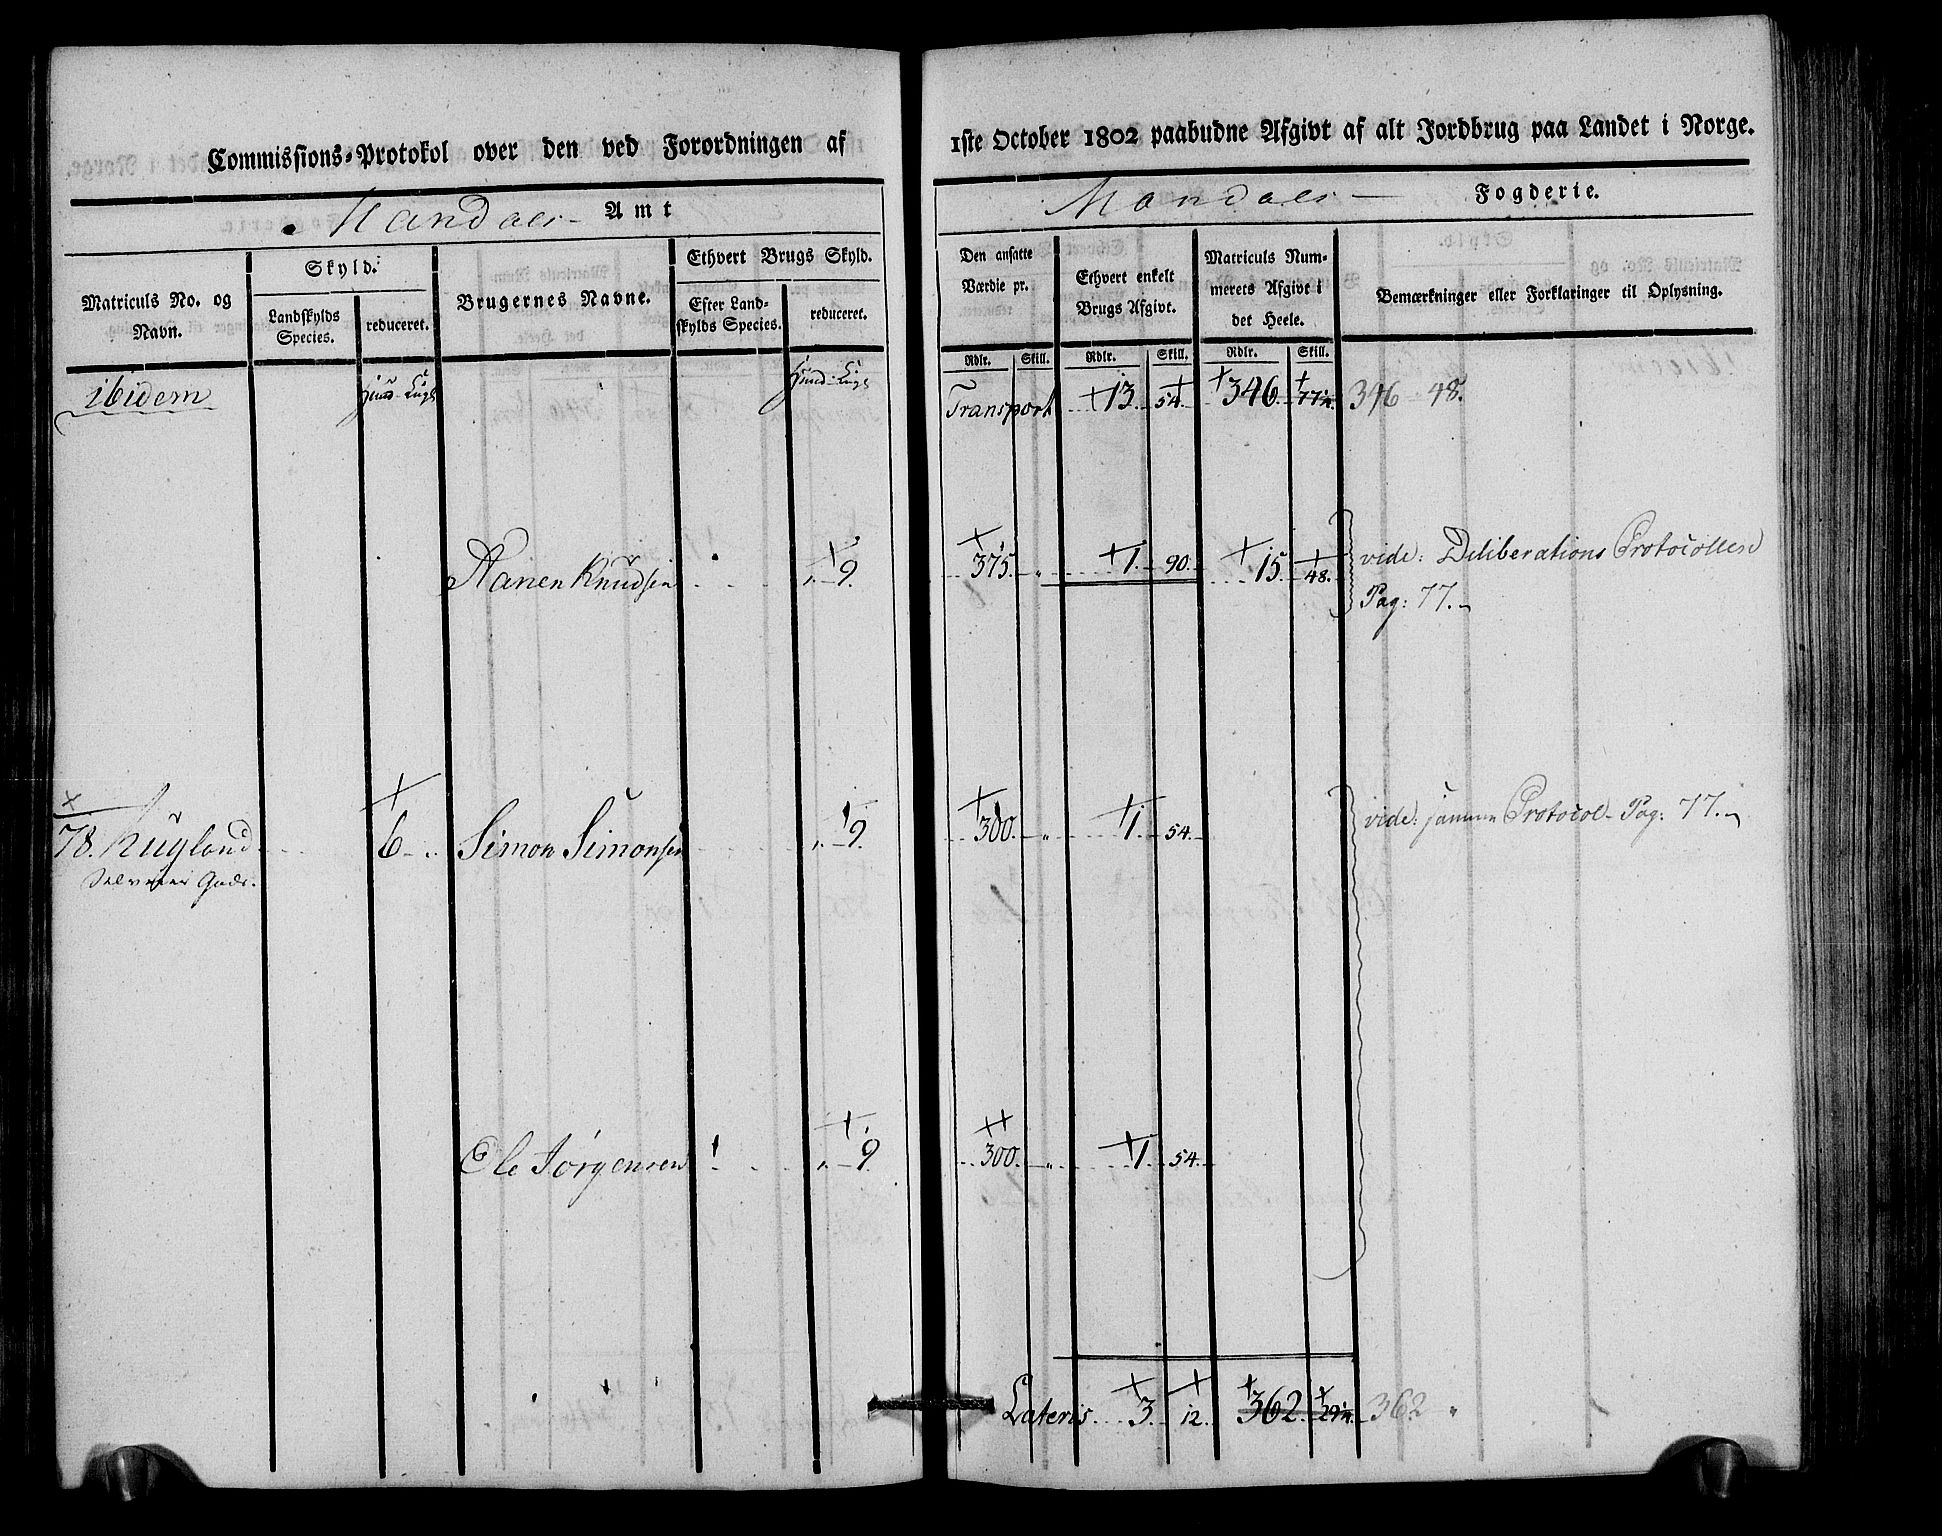 Commissions-Protokol over den ved Forordningen af 1ste October 1802 paabudne Afgivt af alt Jordbrug paa Landet i Norge.
Mandals Amt
Mandals Fogderie.
Matriculs No. og Navn.
Skyld.
Landskylds Species.
reduceret.
Brugernes Navne.
Ethvert Brugs Skyld.
Efter Landskylds Species.
reduceret.
Den ansatte Værdie pr.
Ethvert enkelt Brugs Afgivt.
Matriculs Nummerets Afgivt i det Heele.
Bemærkninger eller Forklaringer til Oplysning.
Rdlr. Skill. Rdlr. Skill. Rdlr. Skill.
ibidem
Transport 13. 54. 346. 346 48.
Knudsen 9. 375. 1. 90. 15. 48. vide: Deliberations Protocollen
Pag: 77.
78. Kugland 6 Simon Simonsen 9. 300. 1. 54. vide: samme Protocol Pag: 77.
Selveier Gods.
Ole Jørgensen 9. 300. 1. 54.
Lateris 3. 12. 362. 362